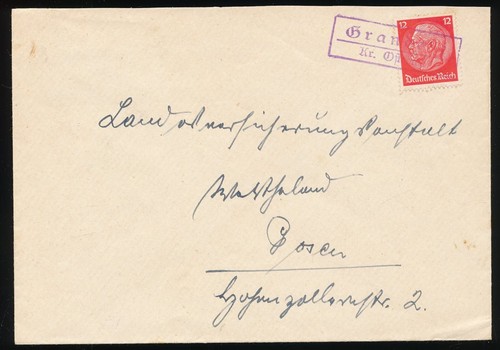 Gran
Kr. Ost
12 12
Deutsches Reich
Landesversicherungsanstalt
Wartheland
Posen
Hohenzollernstr. 2.